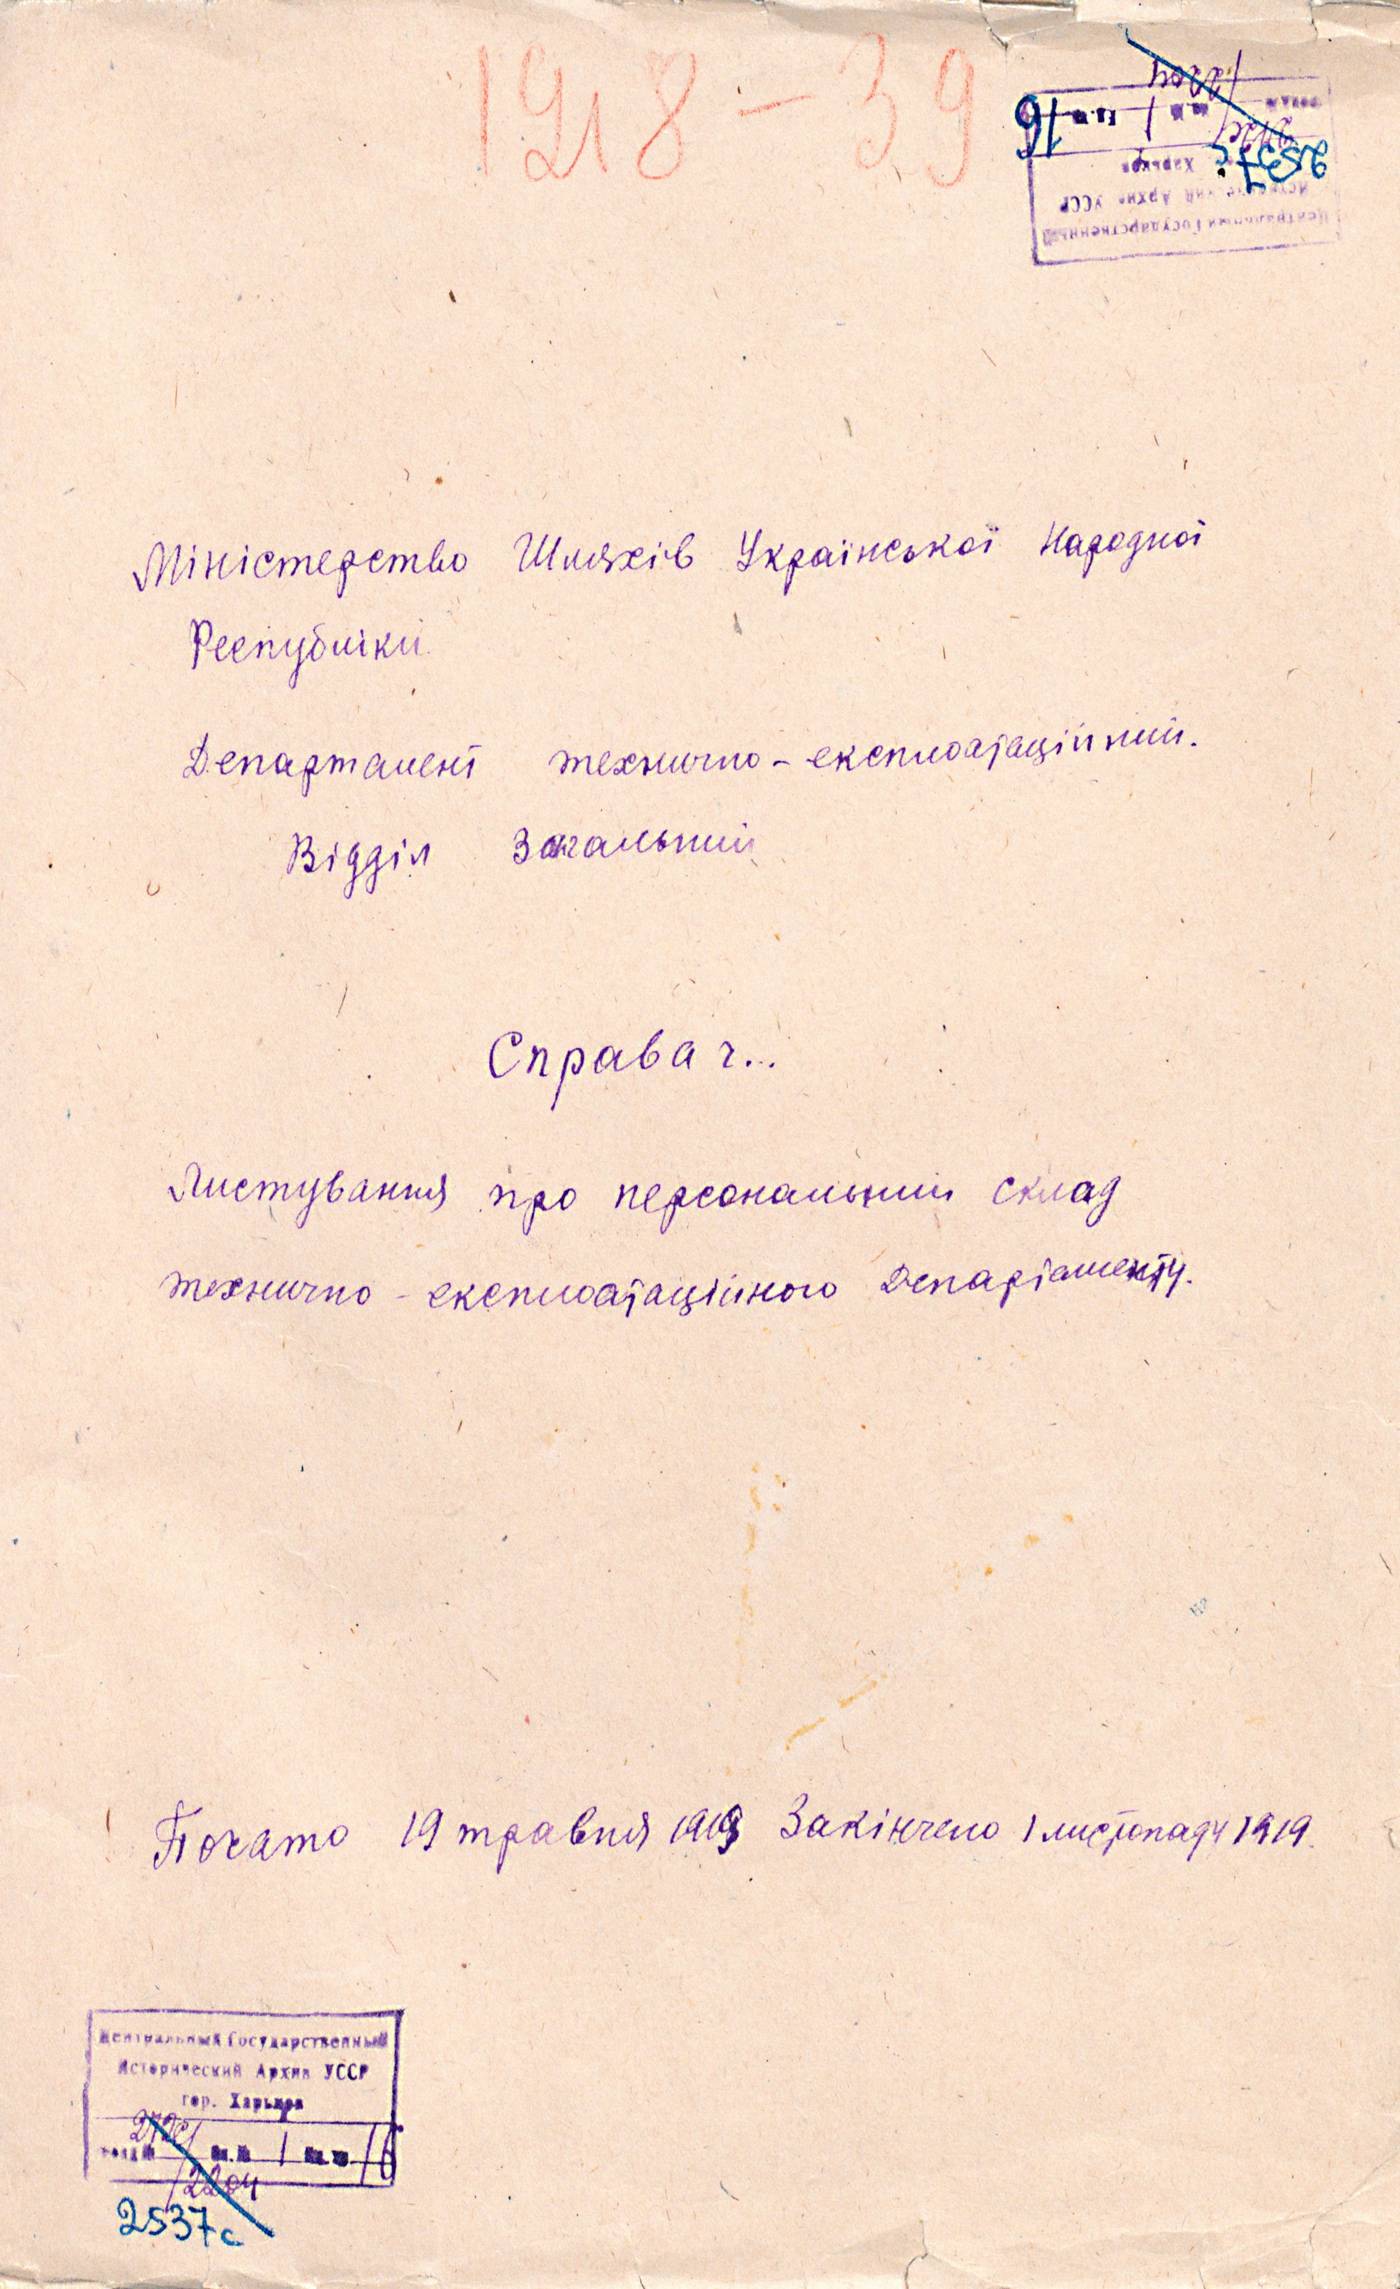 1918-39
Центральный Государственный
Исторический Архив УССР
Харьков
16
2537с
Міністерство Шляхів Української Народної
Республіки
Департамент технично-експлоатаційний.
Відділ Загальний
Справа ч...
Листування про персональний склад
технично-експлоатаційного Департаменту.
Почато 19 травня 1919 Закінчено 1 листопаду 1919.
Центральный Государственный
Исторический Архив УССР
гор. Харьков
фонд № оп.№ 1 ед.хр. 16
/2204
2537с